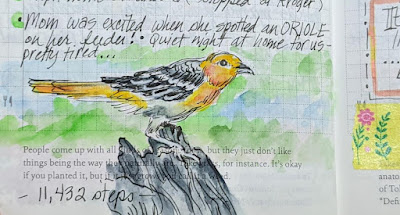 (stopped at Kroger)
• Mom was excited when she spotted an ORIOLE
on her feeder! • Quiet night at home for us-
pretty tired...
People come up with all but they just don't like
things being the way they for instance. It's okay
if you planted it, but if it
- 11,432 steps
anato
of To
"Defi